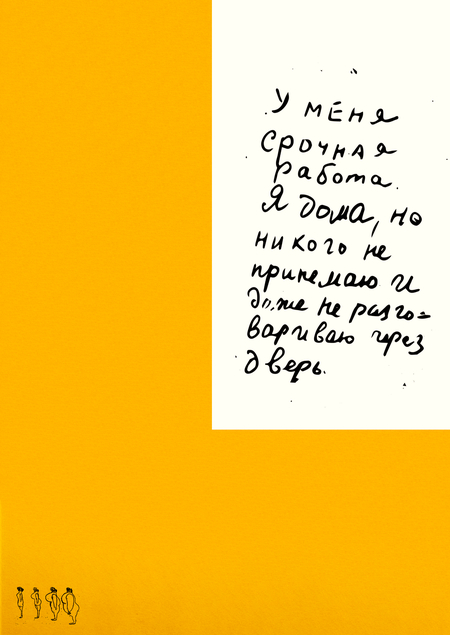 У меня
срочная
работа.
Я дома, но
никого не
принемаю и
даже не разго=
вариваю через
дверь.